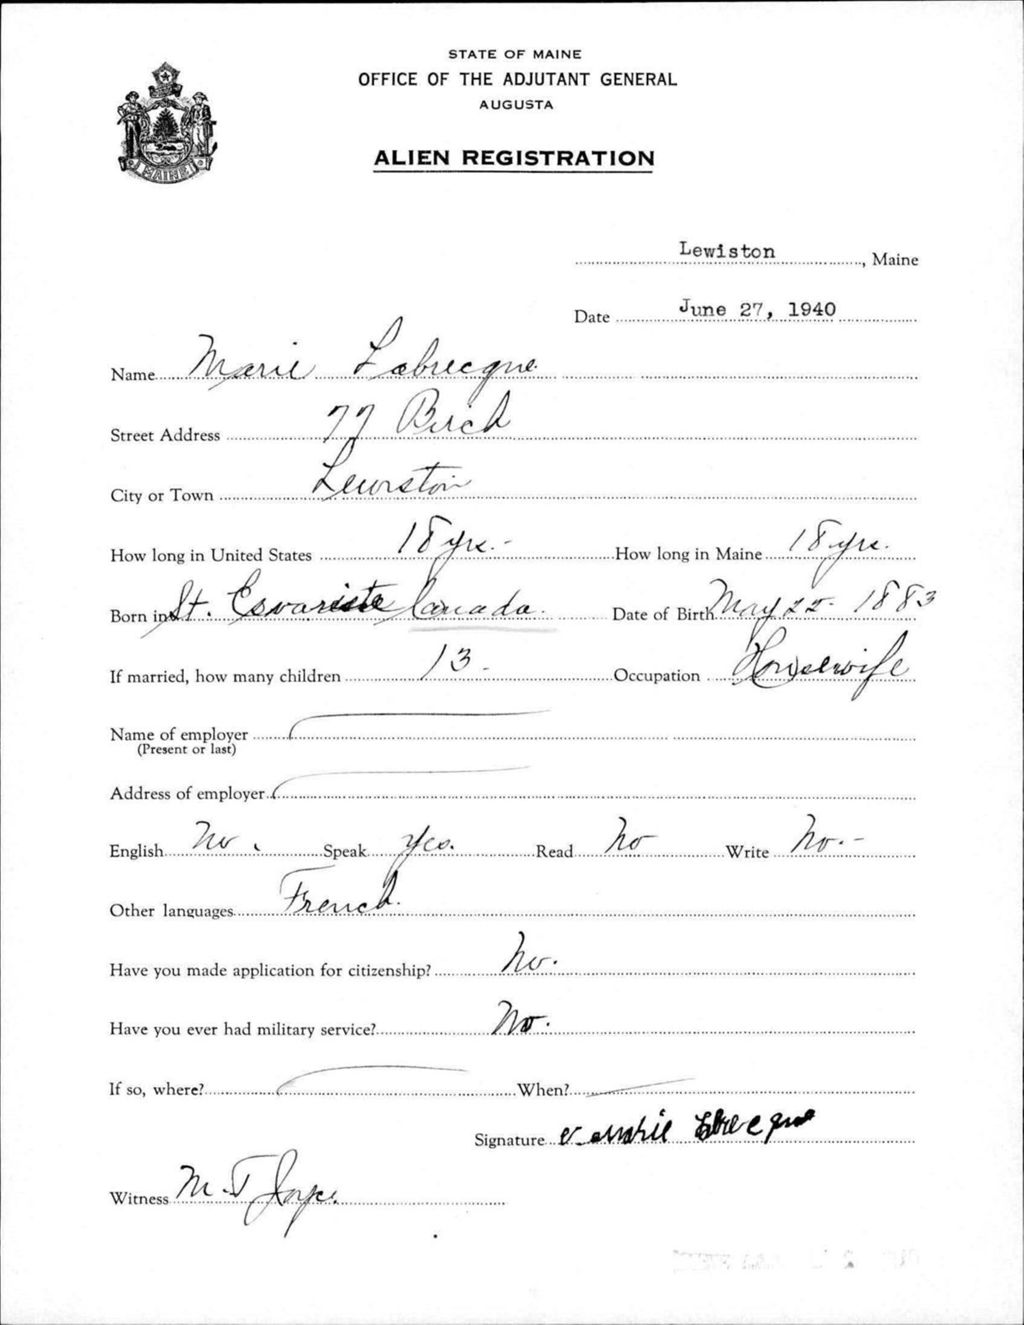 STATE OF MAINE
OFFICE OF THE ADJUTANT GENERAL
AUGUSTA
ALIEN REGISTRATION
MAINE
Lewiston, Maine
Date June 27, 1940
Name Marie Labrecque
Street Address 77 Birch
City or Town Lewiston
How long in United States 18 yrs.- How long in Maine 18 yrs.
Born in St. Esvariste Canada. Date of Birth May 22- 1883
If married, how many children 13- Occupation Housewife
Name of employer
(Present or last)
Address of employer
English No. Speak Yes. Read No Write No.-
Other languages French.
Have you made application for citizenship? No.
Have you ever had military service? No.
If so, where? When?
Signature Marie
Witness M. T. Joyce